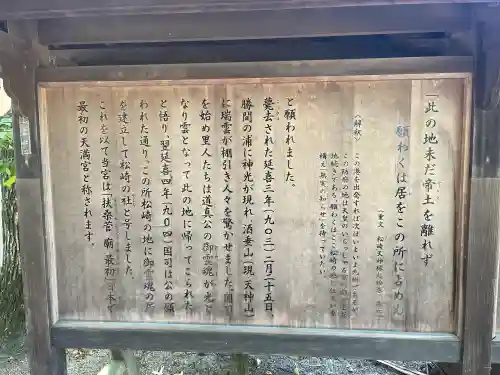 「此の地未だ帝土を離れず
願わくは居をこの所に占めん
(重文 松崎天神縁起絵巻
(解釈) この港を出発すれば次はいよいよ九州
この防府の地は天皇のいらっしゃる
地続きである。願わくはここ松崎の地に住
無実の知らせを待っていたい。
と願われました。
薨去された延喜三年(九〇三)二月二十五日、
勝間の浦に神光が現れ酒垂山(現 天神山)
に瑞雲が棚引き人々を驚かせました。国司
を始め里人たちは道真公の御霊魂が光と
なり雲となって此の地に帰ってこられた
と悟り、翌延喜四年(九〇四)国司は公の願
われた通り、この所松崎の地に御霊魂の所
を建立して松崎の社と号しました。
これを以て当宮は「扶桑菅廟最初」日本で
最初の天満宮と称されます。